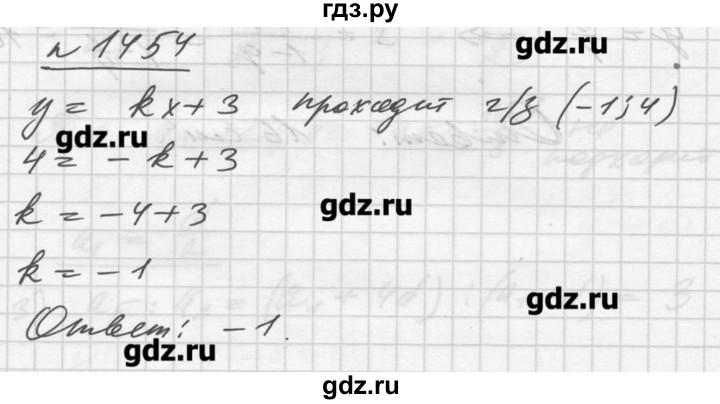 гдз.ру
n 1454
gdz.ru
y = kx + 3 проходит ч/з (-1; 4)
gdz.ru
4 = - k + 3
k = -4 + 3
gdz.ru
k = -1
gdz.ru
Ответ: -1.
gdz.ru
gdz.ru